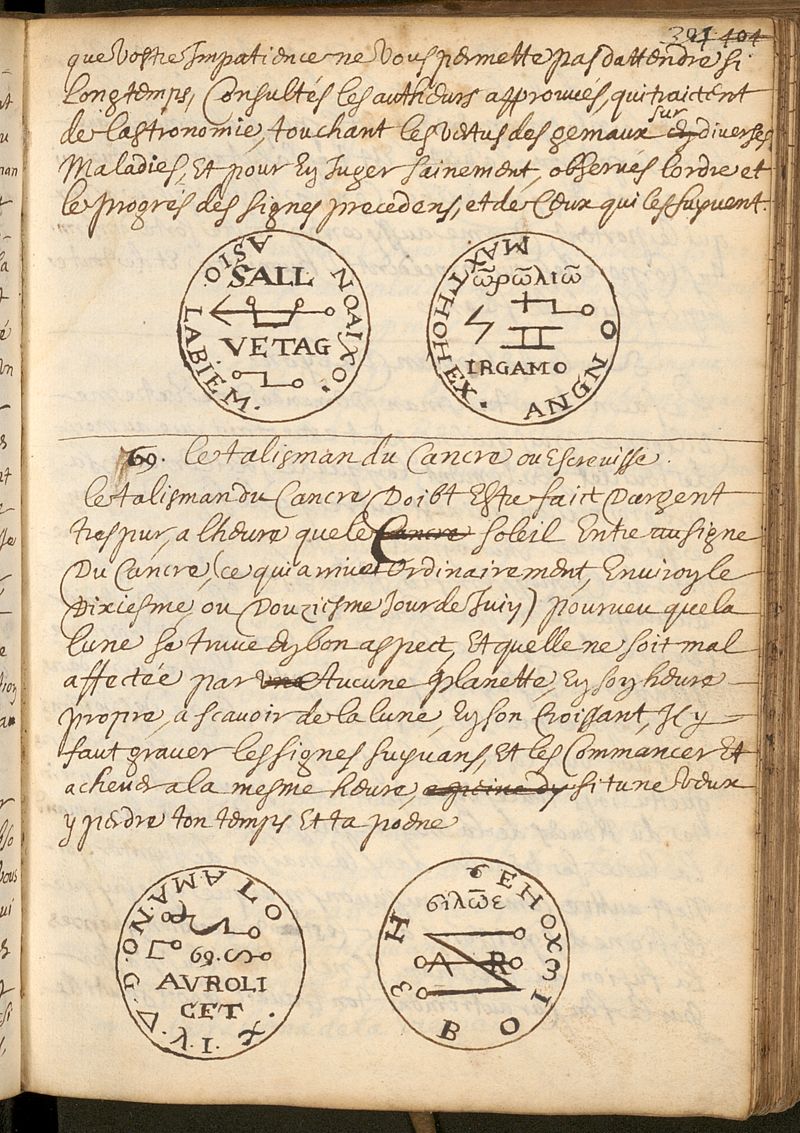 391 404
que Vostre Impatience ne Vous permette pas dattendre si
Longtemps, Consultés les autheurs approuués, qui traictent
de lastronomie, touchant les vertus des gemaux sur diverses
Maladies, Et pour En Juger sainement, observés lordre et
le progrés des signes precedens, et de Ceux qui les suyvent.
ASIO.
NOAIXO.
LABIEM.
SALL
VETAG
MAXTHOHHEX.
ANGNO
ω̄ρωλιω̄
II
IRGAMO
69. le talisman du Cancre ou Escrevisse.
le talisman du Cancre Doibt Estre faict Dargent
trespur, a lheure que le Cancre soleil Entre au signe
Du Cancre, (ce qui arrive Ordinairement, Environ le
Dixiesme, ou Douziesme Jour de Juin) pourveu que la
lune se truve En bon aspect, Et quelle ne soit mal
affectée par une Aucune planette, En son heure
propre, a scavoir de la lune, En son Croissant, Il y
faut graver les signes suyvans, Et les Commancer Et
achever a la mesme heure, si tu ne veux
y perdre ton temps Et ta poene
AMANO.G.V.V.I.X.
LOT
69.
AVROLI
CET
ϭEHOX3IOB3H
ϭιλω̄ε
A R